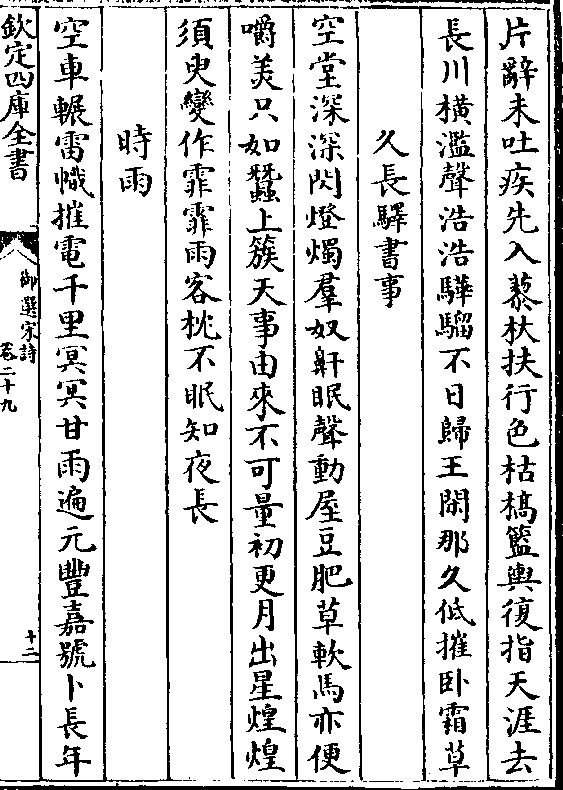 片辭未吐疾先入藜杖扶行色枯槁籃輿復指天涯去
長川橫濫聲浩浩驊騮不日歸王閑那久低摧卧霜草
久長驛書事
空堂深深閃燈燭羣奴鼾眠聲動屋豆肥草軟馬亦便
嚼美只如蠶上簇天事由來不可量初更月出星煌煌
須臾變作霏霏雨客枕不眠知夜長
時雨
空車輾雷幟摧電千里冥冥甘雨遍元豐嘉號卜長年
欽定四庫全書
御選宋詩
卷二十九
十二